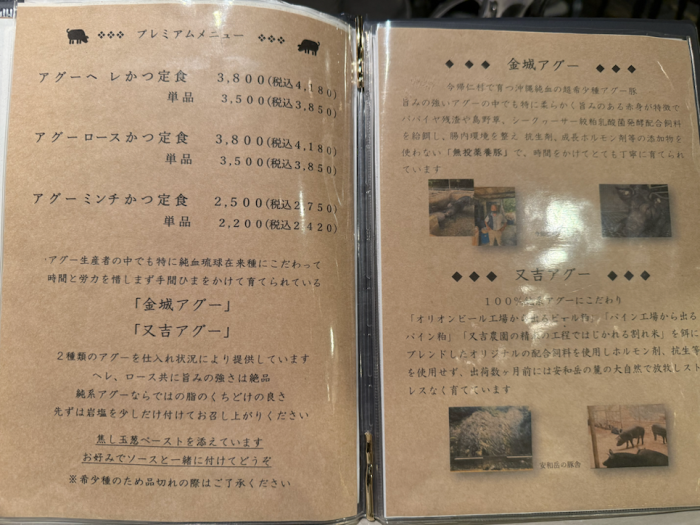 プレミアムメニュー
アグーヘレかつ定食 3,800(税込4,180)
単品 3,500(税込3,850)
アグーロースかつ定食 3,800(税込4,180)
単品 3,500(税込3,850)
アグーミンチかつ定食 2,500(税込2,750)
単品 2,200(税込2,420)
アグー生産者の中でも特に純血琉球在来種にこだわって
時間と労力を惜しまず手間ひまをかけて育てられている
「金城アグー」
「又吉アグー」
2種類のアグーを仕入れ状況により提供しています
ヘレ、ロース共に旨みの強さは絶品
純系アグーならではの脂のくちどけの良さ
先ずは岩塩を少しだけ付けてお召し上がりください
焦し玉葱ペーストを添えています
お好みでソースと一緒に付けてどうぞ
※希少種のため品切れの際はご了承ください
金城アグー
今帰仁村で育つ沖縄純血の超希少種アグー豚
旨みの強いアグーの中でも特に柔らかく旨みのある赤身が特徴で
パパイヤ残渣や島野草、シークヮーサー絞粕乳酸菌発酵配合飼料
を給餌し、腸内環境を整え 抗生剤、成長ホルモン剤等の添加物を
使わない「無投薬養豚」で、時間をかけてとても丁寧に育てられ
ています
又吉アグー
100%純系アグーにこだわり
「オリオンビール工場から出るビール粕」「パイン工場から出る
パイン粕」「又吉農園の精米の工程ではじかれる割れ米」を餌に
ブレンドしたオリジナルの配合飼料を使用しホルモン剤、抗生等
を使用せず、出荷数ヶ月前には安和岳の麓の大自然で放牧しスト
レスなく育てています
安和岳の豚舎